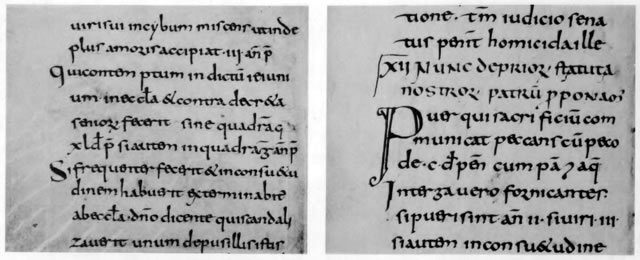 uirisui incybum miscens ut inde
plus amoris accipiat · iii · an̄ p̄
Qui contem ptum indictū ieiuni
um in ęccl̄a & contra decr&a
seniorū fecerit sine quadrāq
xl d̄ p̄ si autem in quadraḡ an̄ p̄
Si frequenter fecerit & in consu&u
dinem habuerit exterminabit̄
ab eccl̄a · dn̄o dicente qui scandali
zauerit unum de pusillis istis
tione · tm̄ iudicio sena
tus penīt homicida ille
XII NUNC de priorū statuta
nostrorū patrū p̄ponam̄
Puer qui sacrificium com
municat peccans cū peco
de · c · d̄ pen̄ cum pa᷒ 7 aq̄
Inter za uero fornicantes
si pueri sint an̄ · ii · si uiri · iii ·
si autem in consu&udine